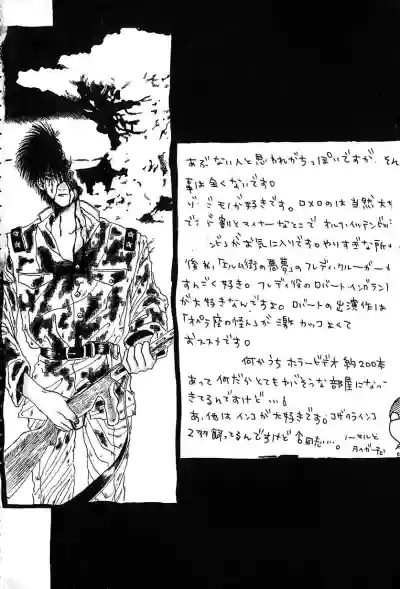 あぶない人と思われがちっぽいですが、そん
事は全くないです。
ゾンビモノが好きです。ロメロのは当然大好
で、ド割とマイナーなとこで
ンビ」がお気に入りです。やりすぎな所
僕ね、「エルム街の悪夢」のフレディ・クルーガーも
すんごく好き。フレディ役のロバート・イングランド
が大好きなんですよ。ロバートの出演作は
「オペラ座の怪人」が激カッコよくて
おススメです。
何かうちホラービデオ約200本
あって何だかとてもヤバそうな部屋になっ
きてるんですけど…。
あ、俺はインコが大好きです。コザクラインコ
2羽飼ってるんですけど
ノーマルと
タイガーチェリー